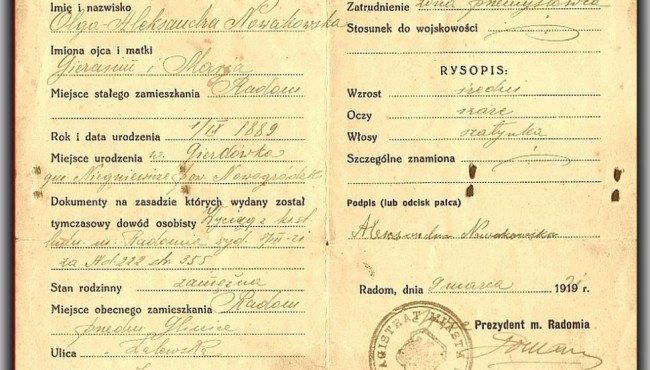 Imię i nazwisko
Olga-Aleksandra Nowakowska
Imiona ojca i matki
Gierasim i Marja
Miejsce stałego zamieszkania Radom
Rok i data urodzenia 1/IX 1889
Miejsce urodzenia w. Gierdówka
gm Niegniewicze pow. Nowogródek
Dokumenty na zasadzie których wydany został
tymczasowy dowód osobisty Wyciąg z
ludn. m. Radomia wyd.
za Ad. 222 str. 355
Stan rodzinny zamężna
Miejsce obecnego zamieszkania Radom
przedm. Glinice
Ulica
Zatrudnienie żona przemysłowca
Stosunek do wojskowości
RYSOPIS:
Wzrost średni
Oczy szare
Włosy szatynka
Szczególne znamiona
Podpis (lub odcisk palca)
Aleksandra Nowakowska
Radom, dnia 9 marca 192 r.
Prezydent m. Radomia
MAGISTRAT MIASTA